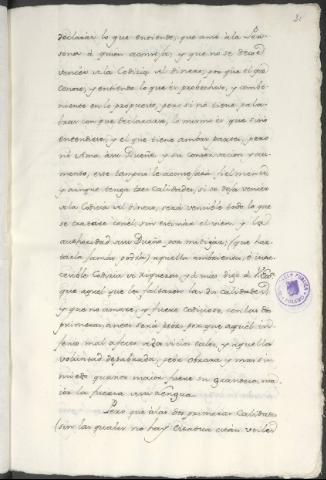 31
declarar lo que entiende, que ame à la Per-
sona à quien aconseja, y que no se deje
vencer de la Codicia del dinero; por que el que
conoce, y entiende lo que es probechoso, y combe-
niente en lo propuesto, pero si nò tiene pala-
bras con que declararlo, lo mismo es que si no
entendiese; y el que tiene ambas partes, pero
nò Ama à su Dueño, y su conservacion y au-
mento, ese tampoco le aconsejará fielmente
y aunque tenga tres Calidades, si se deja vencer
de la Codicia del dinero, será vendible todo lo que
se tratare con el, sin estimar el vien, y la
authoridad de su Dueño, por mitigar, (que har-
tarla jamas podrá) aquella
Codicia y demas dijo
que aquel que le faltaren las dos Calidades
y que no amare, y fuere Codicioso, con las dos
primeras antes será peor, por que aquel in-
genio mal afecto
voluntad depravada, peor obrara y mas sin
miedo quanto maior fuere su grandeza, ma-
ior la fuerza de su lengua.
Pero que à las dos primeras Calidades
(sin las quales no hay